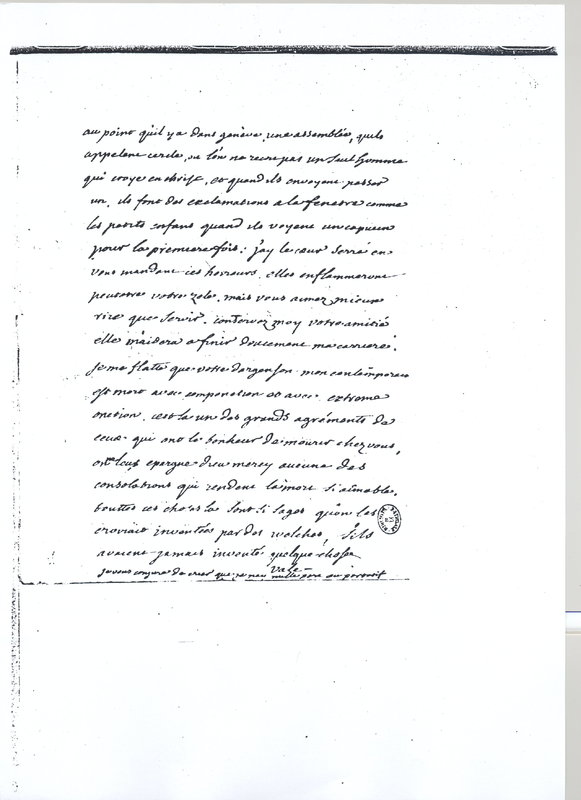 au point quil y a dans genève, une assemblée, quils
appellent cercle, ou l'on ne reçoit pas un seul homme
qui croye en christ, et quand ils en voyent passer
un, ils font des exclamations a la fenetre comme
les petits enfans quand ils voyent un capucin
pour la premiere fois: j'ay le cœur serré en
vous mandant ces horreurs. elles enflammeront
peutetre votre zele. mais vous aimez mieux
rire que servir. conservez moy votre amitié
elle m'aidera a finir doucement ma carriere.
je me flatte que votre dargenson mon contemporain
est mort avec componction et avec extreme
onction. c'est la un des grands agréments de
ceux qui ont le bonheur de mourir chez vous,
on leur epargne dieu mercy aucune des
consolations qui rendent la mort si aimable.
touttes ces choses la sont si sages qu'on les
croiroit inventées par des welches, s'ils
avaient jamais inventé quelque chose
Vale
je vous conjure de crier que je n'ay nulle part au portatif